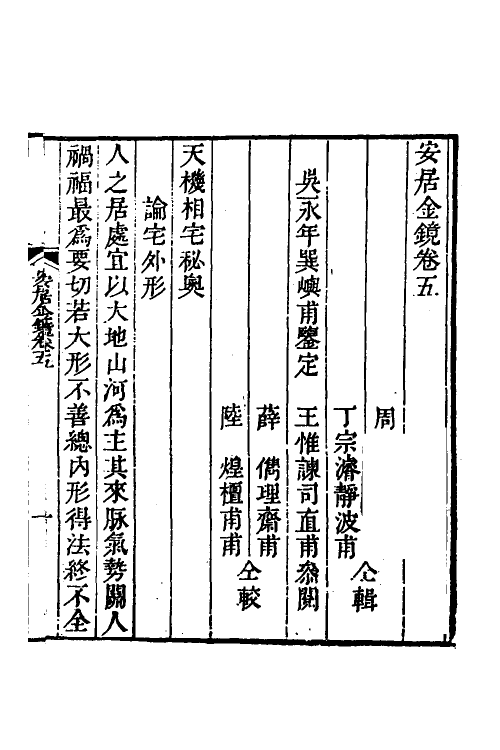 安居金鏡卷五
周
丁宗濬靜波甫
仝輯
吳永年巽嶼甫鑒定
王惟諫司直甫叅閱
薛儁理齋甫
陸煌櫃甫甫
仝較
天機相宅秘奥
論宅外形
人之居處宜以大地山河爲主其來脈氣勢關人
禍福最爲要切若大形不善總內形得法終不全
安居金鏡卷五
一